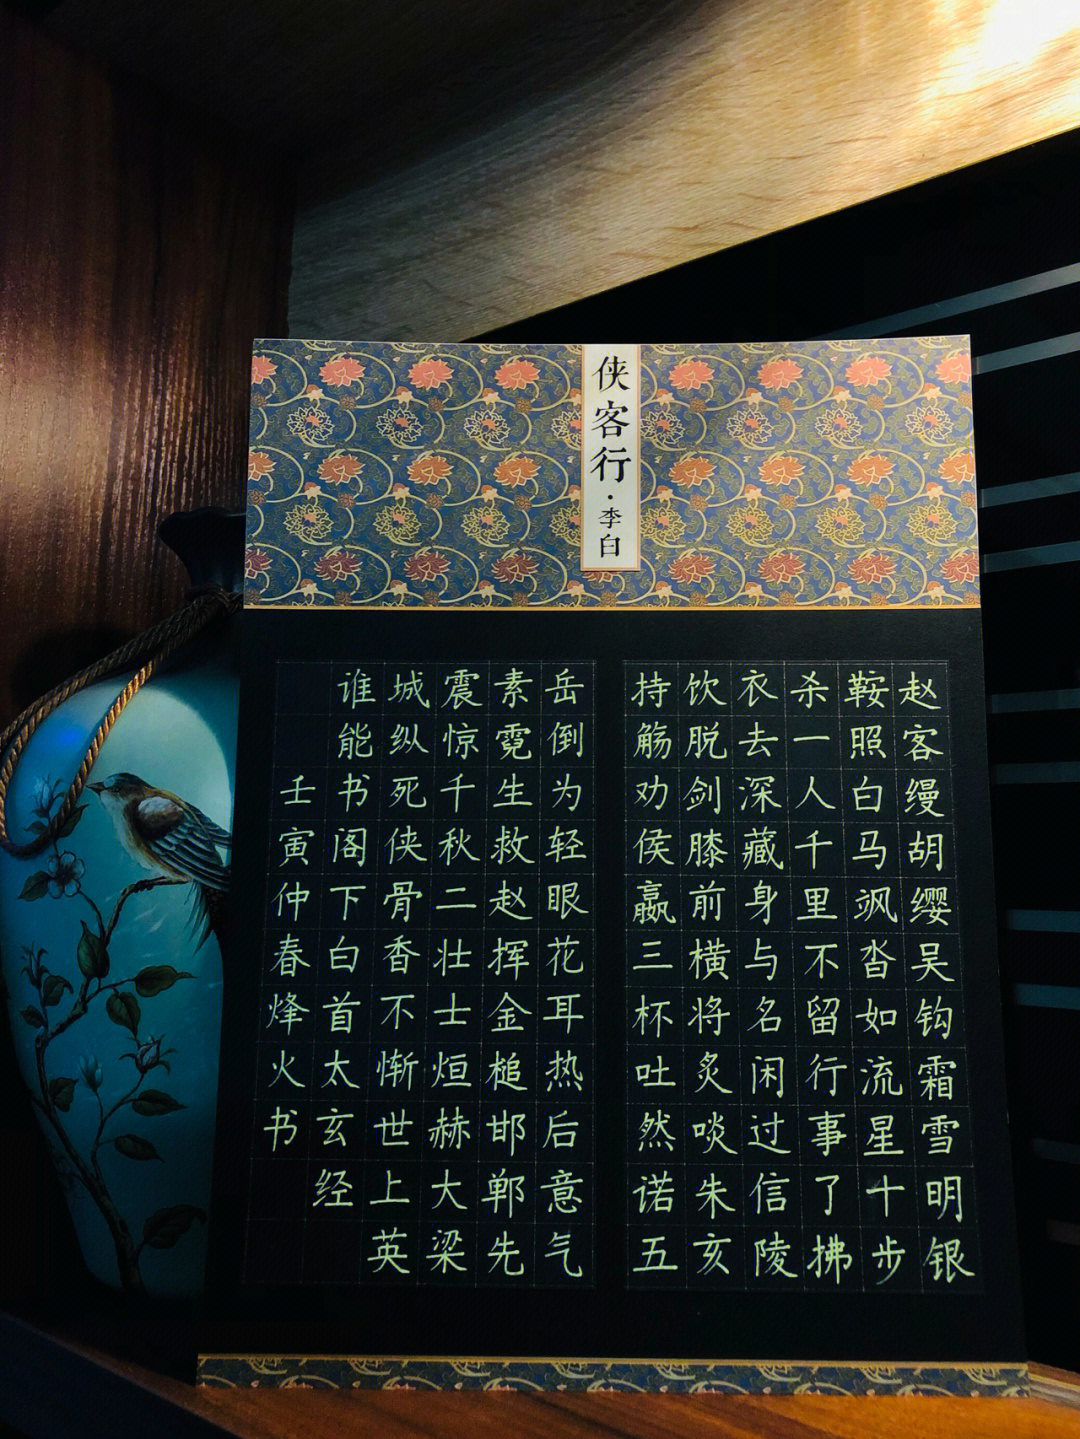 侠客行·李白
赵客缦胡缨吴钩霜雪明银
鞍照白马飒沓如流星十步
杀一人千里不留行事了拂
衣去深藏身与名闲过信陵
饮脱剑膝前横将炙啖朱亥
持觞劝侯嬴三杯吐然诺五
岳倒为轻眼花耳热后意气
素霓生救赵挥金槌邯郸先
震惊千秋二壮士烜赫大梁
城纵死侠骨香不惭世上英
谁能书阁下白首太玄经
壬寅仲春烽火书